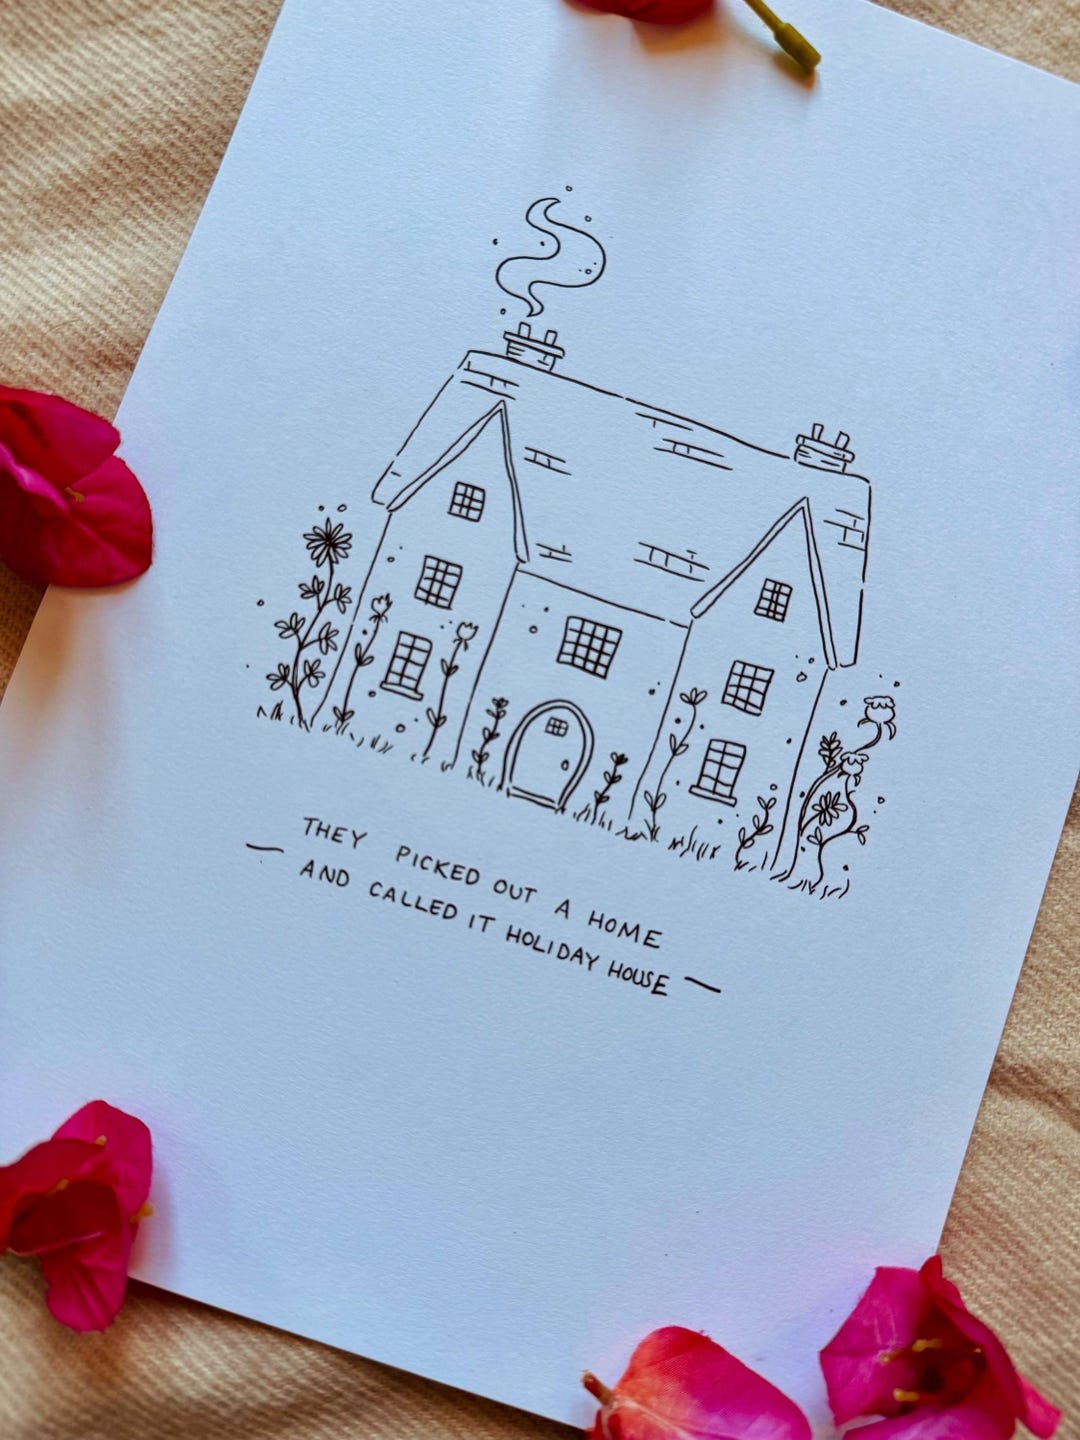 THEY PICKED OUT A HOME
— AND CALLED IT HOLIDAY HOUSE —